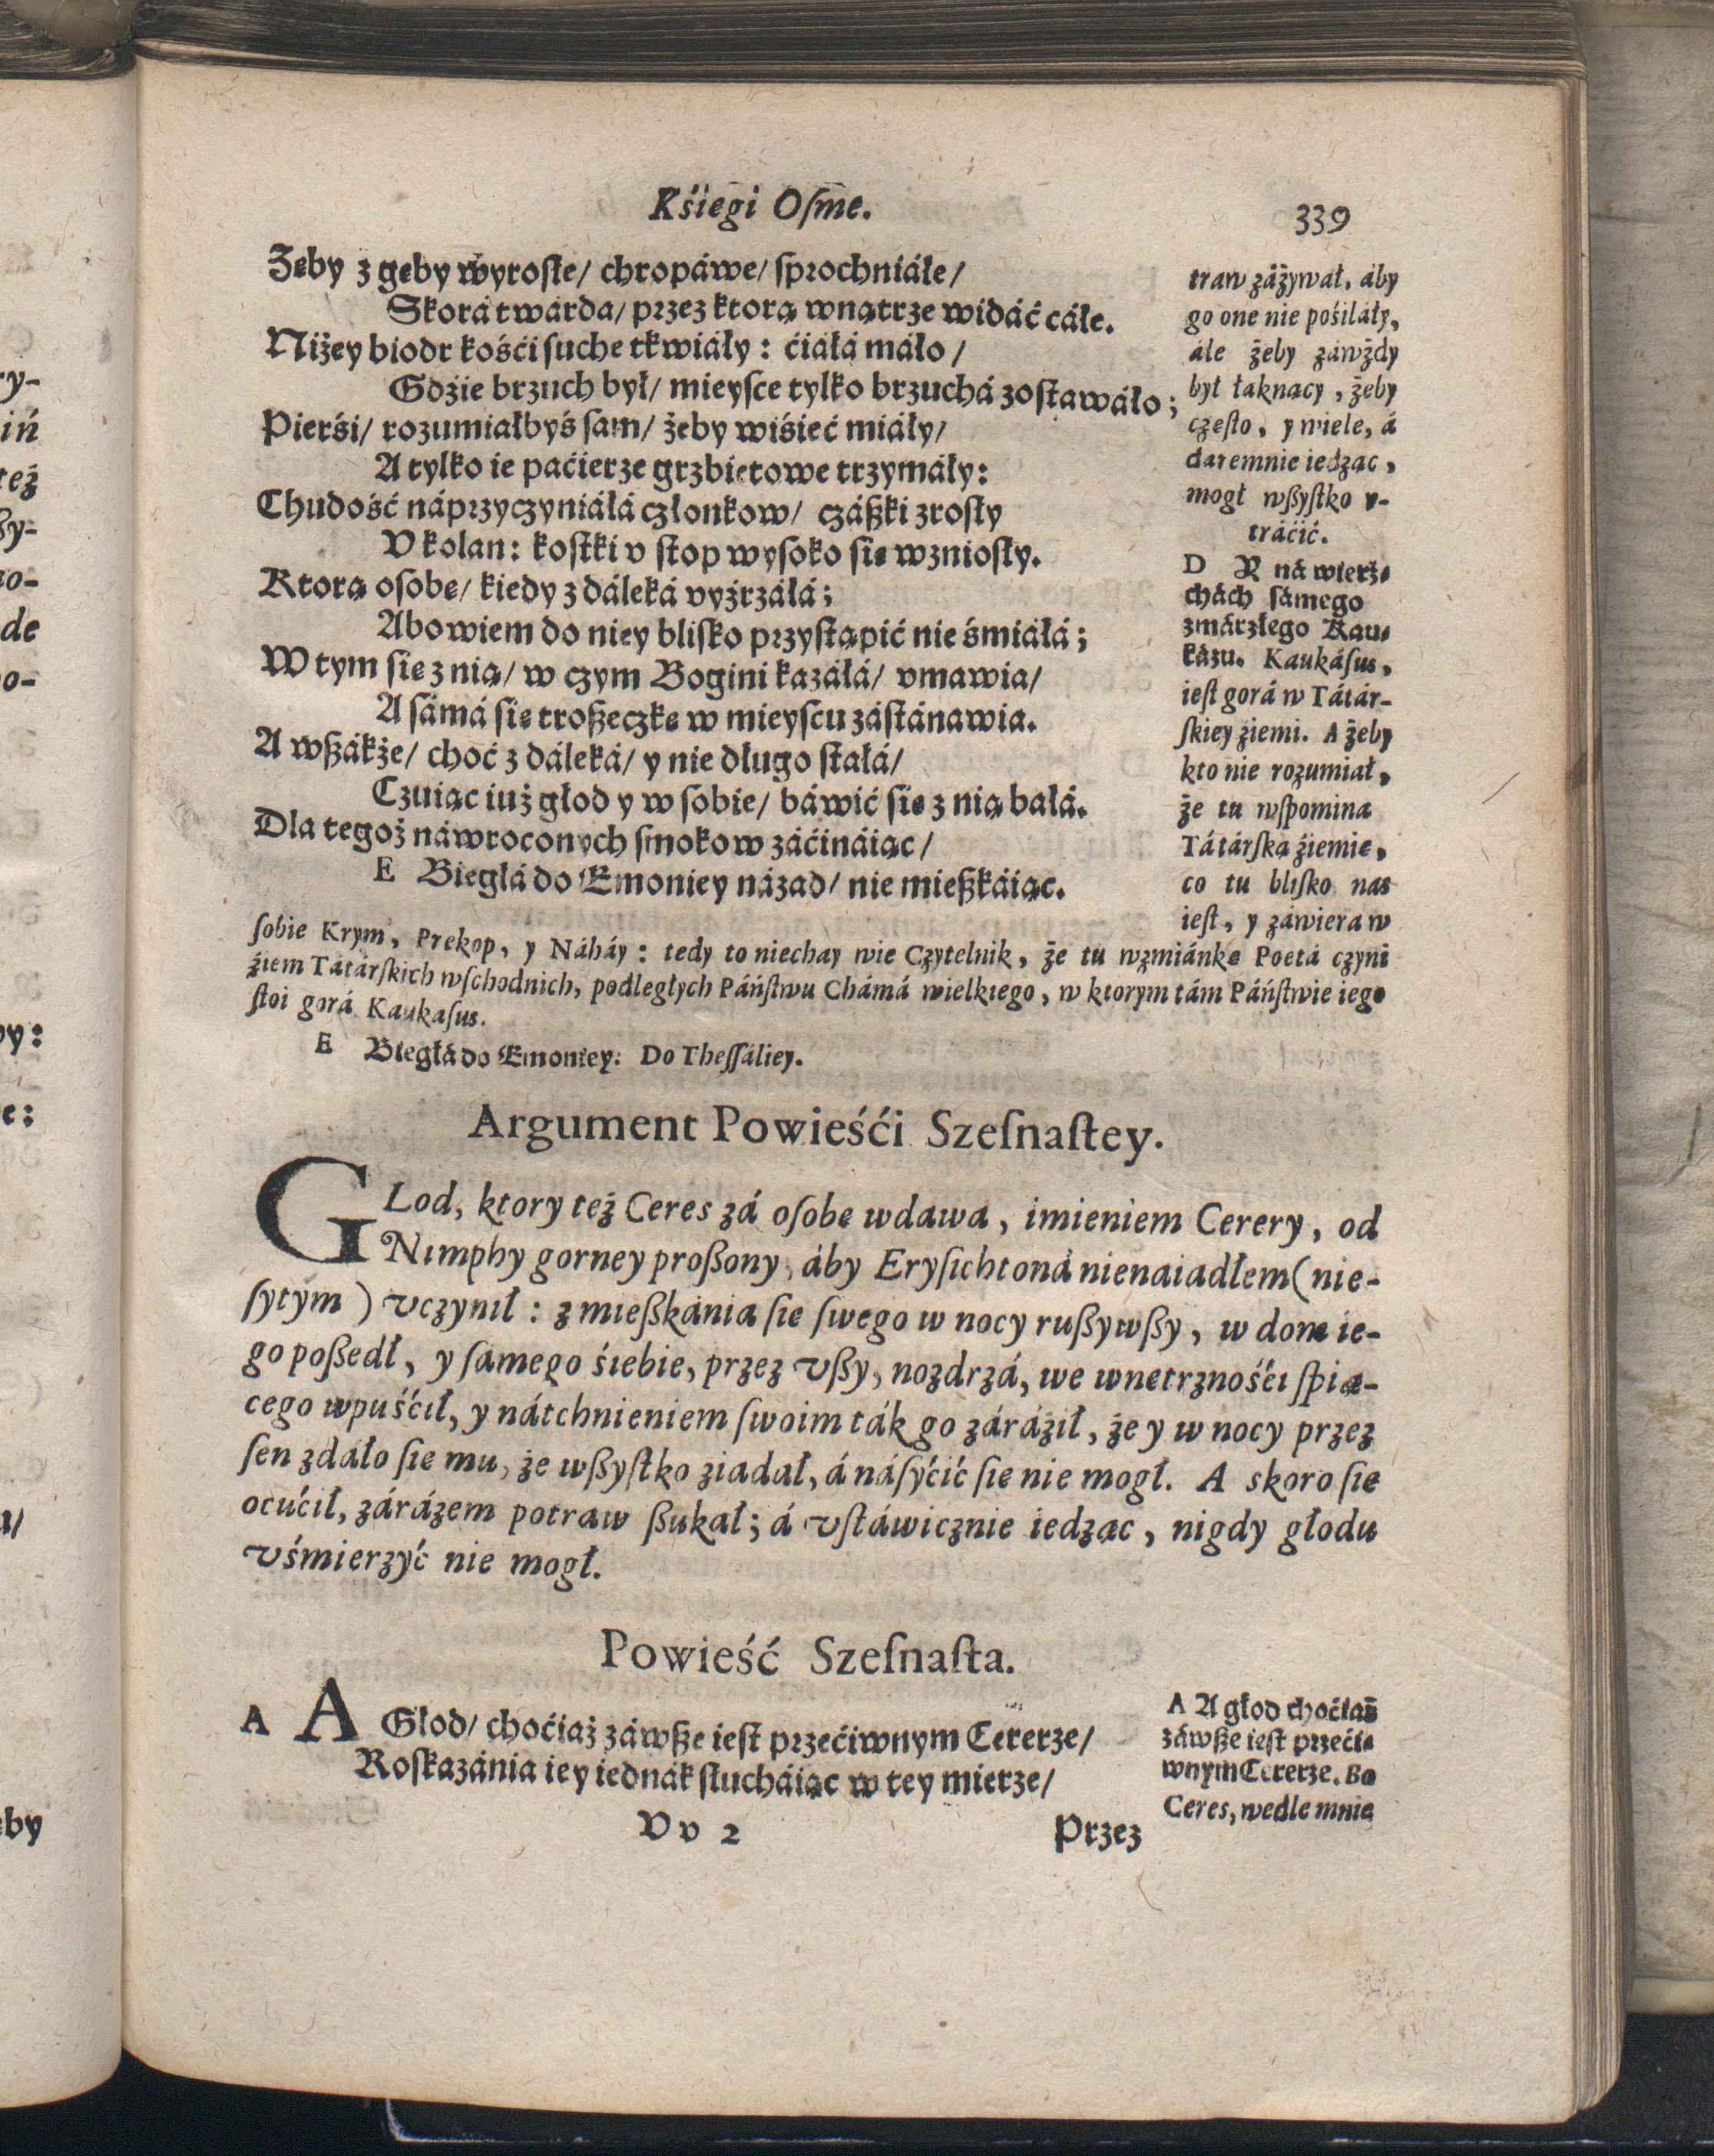 Kśięgi Oſme.
339
Zęby z gęby wyroſłe/ chropáwe/ ſprochniáłe/
Skorá twárda/ przez ktorą wnątrze widáć cáłe.
Niżey biodr kośći ſuche tkwiáły: ćiáłá máło/
Gdźie brzuch był/ mieyſce tylko brzuchá zoſtawáło;
Pierśi/ rozumiałbyś ſam/ żeby wiśieć miáły/
A tylko ie paćierze grzbietowe trzymáły:
Chudość náprzyczyniáłá członkow/ czáßki zroſły
V kolan: koſtki v ſtop wyſoko się wznioſły.
Ktorą oſobę/ kiedy z dáleká vyźrzáłá;
Abowiem do niey bliſko przyſtąpić nie śmiáłá;
W tym się z nią/ w czym Bogini kazáłá/ vmawia/
A ſámá się troßeczkę w mieyſcu záſtánawia.
A wßákże/ choć z dáleká/ y nie długo ſtałá/
Czuiąc iuż głod y w ſobie/ báwić się z nią bałá.
Dla tegoż náwroconych ſmokow záćináiąc/
E Biegłá do Emoniey názad/ nie mießkáiąc.
traw záżywał, áby
go one nie pośiláły,
ále żeby záwżdy
był łaknący, żeby
częſto, y wiele, á
daremnie iedząc,
mogł wßyſtko v-
tráćić.
D Y ná wierz-
chách ſámego
zmárzłego Kau-
kázu. Kaukáſus,
ieſt gorá w Tátár-
ſkiey źiemi. A żeby
kto nie rozumiał,
że tu wſpomina
Tátárſką źiemię,
co tu bliſko nas
ieſt, y záwiera w
ſobie Krym, Prekop, y Náháy: tedy to niechay wie Czytelnik, że tu wzmiánkę Poetá czyni
źiem Tátárſkich wſchodnich, podległych Páńſtwu Chámá wielkiego, w ktorym tám Páńſtwie iego
ſtoi gorá Kaukaſus.
E Biegłá do Emoniey: Do Theſſáliey.
Argument Powieśći Szeſnaſtey.
GLod, ktory też Ceres zá oſobę wdawa, imieniem Cerery, od
Nimphy gorney proßony, áby Eryſichtoná nienaiadłem (nie-
ſytym) vczynił: z mießkánia ſię ſwego w nocy rußywßy, w dom ie-
go poßedł, y ſamego śiebie, przez vßy, nozdrzá, we wnetrznośći ſpią-
cego wpuśćił, y nátchnieniem ſwoim ták go záráźił, że y w nocy przez
ſen zdáło ſię mu, że wßyſtko ziadał, á náſyćić ſię nie mogł. A skoro ſię
ocućił, zárázem potraw ßukał; á vſtáwicznie iedząc, nigdy głodu
vśmierzyć nie mogł.
Powieść Szeſnaſta.
A A Głod/ choćiaż záwße ieſt przećiwnym Cererze/
Roſkazánia iey iednák ſłucháiąc w tey mierze/
A A głod choćiaż
záwße ieſt przeći-
wnym Cererze. Bo
Ceres, wedle mnie
V v 2
Przez